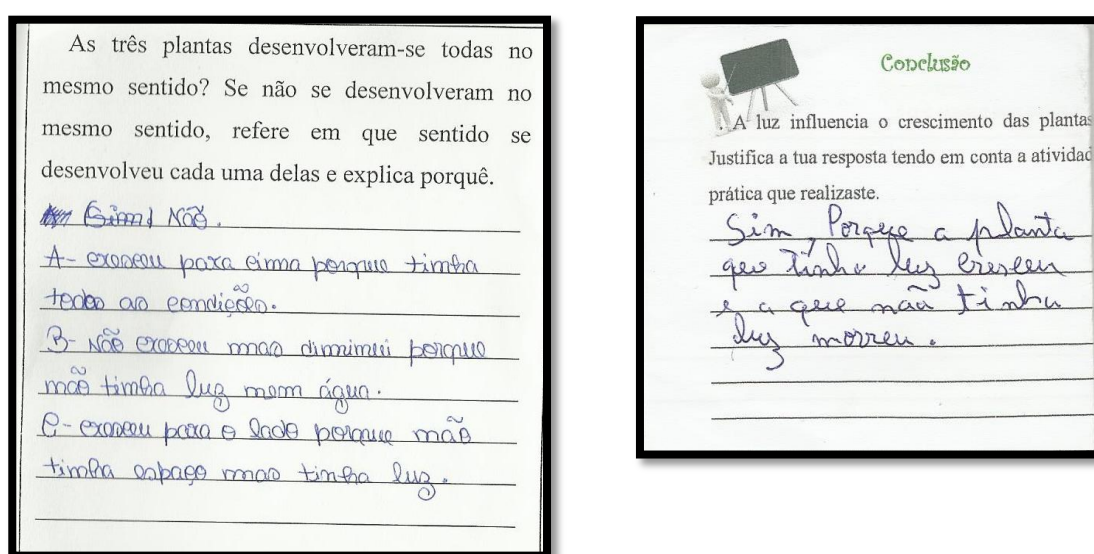 As três plantas desenvolveram-se todas no
mesmo sentido? Se não se desenvolveram no
mesmo sentido, refere em que sentido se
desenvolveu cada uma delas e explica porquê.
(Sim) Não.
A- cresceu para cima porque tinha
todas as condições.
B- Não cresceu mas diminui porque
não tinha luz nem água.
C- cresceu para o lado porque não
tinha espaço mas tinha luz.
Conclusão
. A luz influencia o crescimento das plantas
Justifica a tua resposta tendo em conta a atividad
prática que realizaste.
Sim, Porque a planta
que tinha luz cresceu
e a que não tinha
luz morreu.